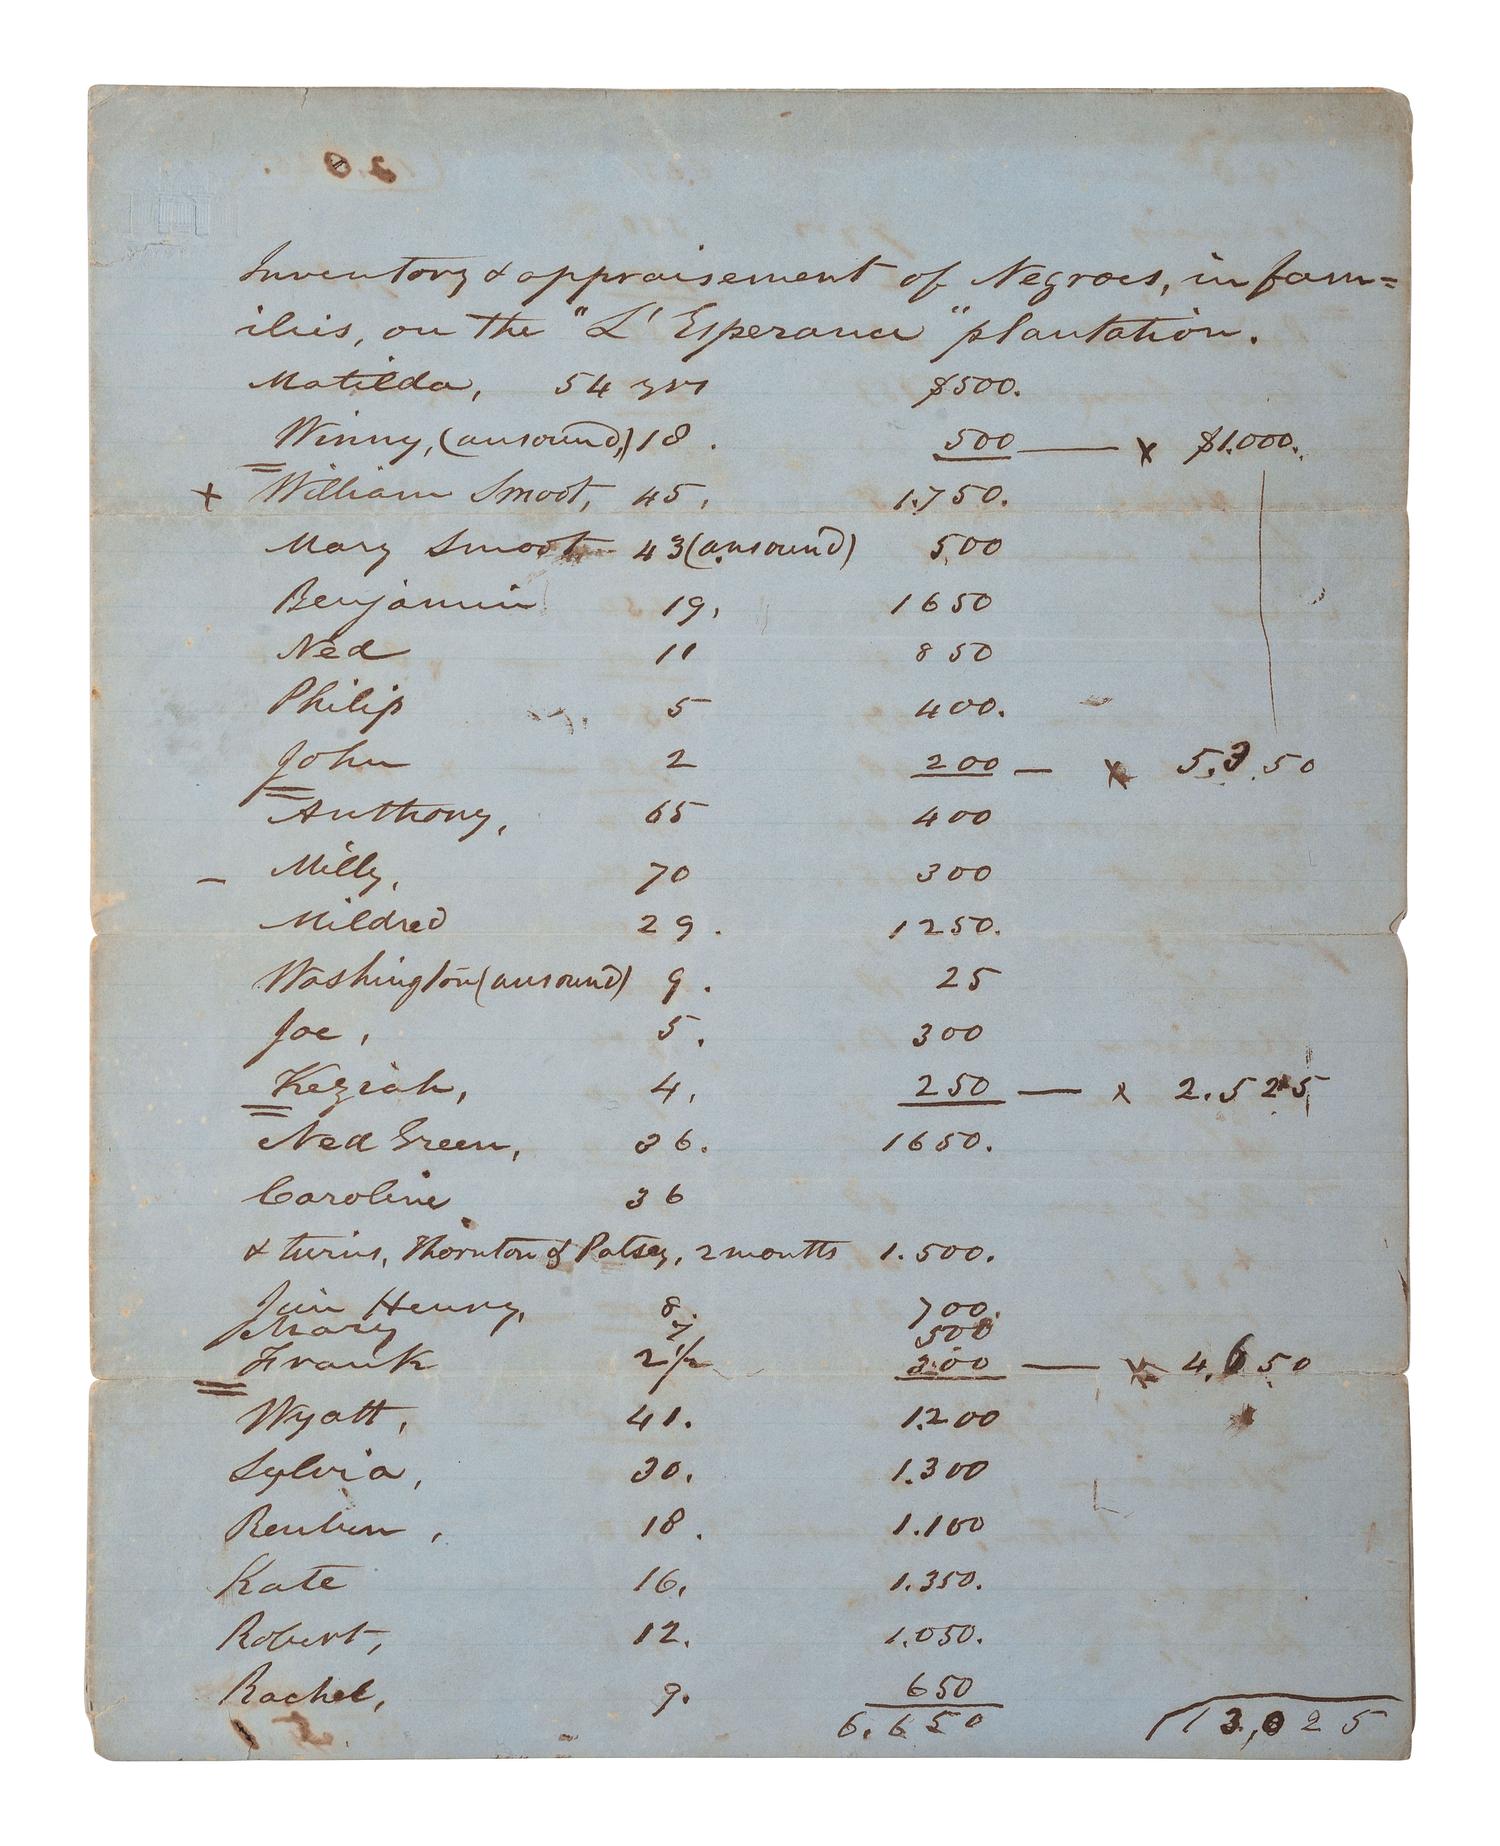 20
Inventory & appraisement of Negroes, in fam=
ilies, on the "L'Esperance" plantation.
Matilda, 54 yrs $500.
Winny, (unsound,) 18. 500 — x $1.000.
+ William Smoot, 45, 1.750.
Mary Smoot 43 (unsound) 500
Benjamin 19, 1650
Ned 11 850
Philip 5 400.
John 2 200 — x 5.350
Anthony, 65 400
– Milly, 70 300
Mildred 29. 1250.
Washington (unsound) 9. 25
Joe, 5. 300
Keziah, 4, 250 — x 2.525
Ned Green, 36. 1650.
Caroline 36
& twins, Thornton & Patsey, 2 months 1.500.
Jim Henry, 8. 700.
Mary 7 500
Frank 2 1/2 300 — x 4.650
Wyatt, 41. 1.200
Sylvia, 30. 1.300
Reuben, 18. 1.100
Kate 16, 1.350.
Robert, 12. 1.050.
Rachel, 9. 650
6.650 13,025